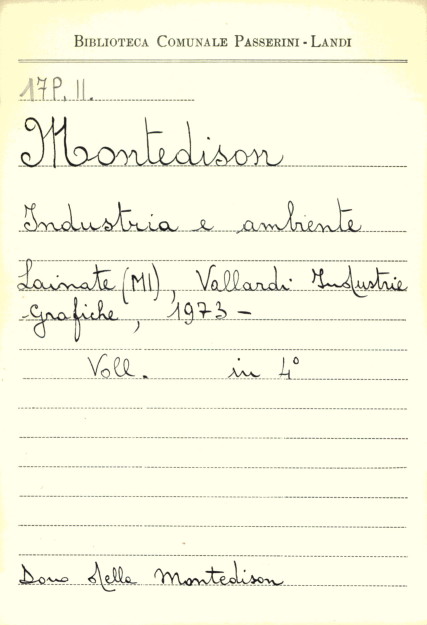 BIBLIOTECA COMUNALE PASSERINI - LANDI
17P. II.
Montedison
Industria e ambiente
Lainate (MI), Vallardi Industrie
Grafiche, 1973 -
Voll. in 4°
Dono della Montedison